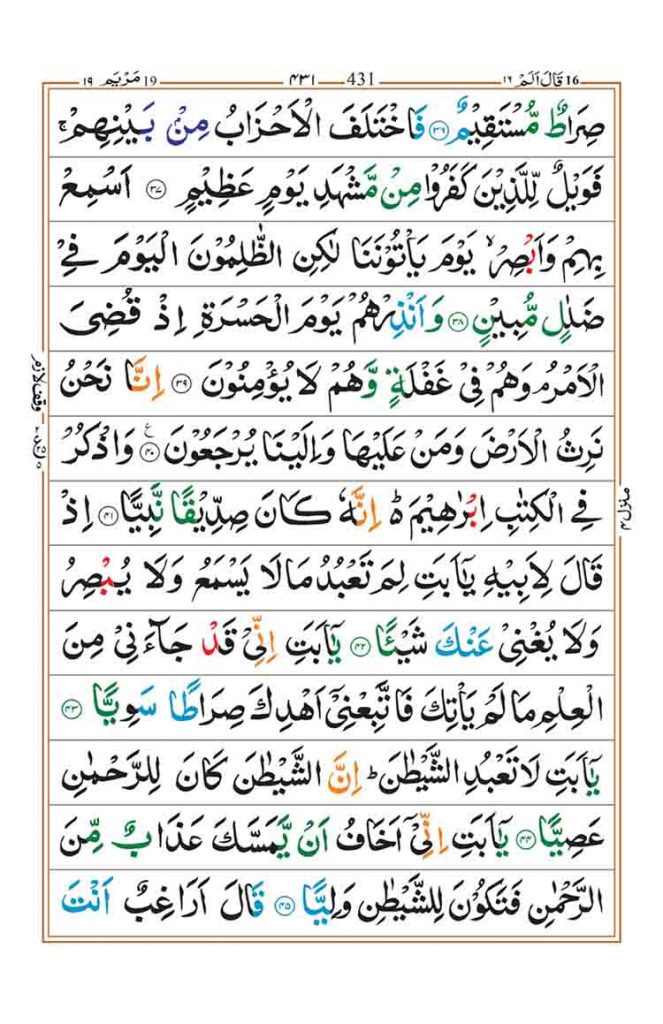 16 قَالَ اَلَمْ ١٦
431 ۴۳۱
19 مَرْيَم ١٩
صِرَاطٌ مُّسْتَقِيْمٌ ۝۳۶ فَاخْتَلَفَ الْاَحْزَابُ مِنْۢ بَيْنِهِمْ ۚ
فَوَيْلٌ لِّلَّذِيْنَ كَفَرُوْا مِنْ مَّشْهَدِ يَوْمٍ عَظِيْمٍ ۝۳۷ اَسْمِعْ
بِهِمْ وَاَبْصِرْ ۙ يَوْمَ يَاْتُوْنَنَا لٰكِنِ الظّٰلِمُوْنَ الْيَوْمَ فِيْ
ضَلٰلٍ مُّبِيْنٍ ۝۳۸ وَاَنْذِرْهُمْ يَوْمَ الْحَسْرَةِ اِذْ قُضِيَ
الْاَمْرُ ۘ وَهُمْ فِيْ غَفْلَةٍ وَّهُمْ لَا يُؤْمِنُوْنَ ۝۳۹ اِنَّا نَحْنُ
نَرِثُ الْاَرْضَ وَمَنْ عَلَيْهَا وَاِلَيْنَا يُرْجَعُوْنَ ۝۴۰ ع وَاذْكُرْ
فِي الْكِتٰبِ اِبْرٰهِيْمَ ؕ۬ اِنَّهٗ كَانَ صِدِّيْقًا نَّبِيًّا ۝۴۱ اِذْ
قَالَ لِاَبِيْهِ يٰۤاَبَتِ لِمَ تَعْبُدُ مَا لَا يَسْمَعُ وَلَا يُبْصِرُ
وَلَا يُغْنِيْ عَنْكَ شَيْـًٔا ۝۴۲ يٰۤاَبَتِ اِنِّيْ قَدْ جَآءَنِيْ مِنَ
الْعِلْمِ مَا لَمْ يَاْتِكَ فَاتَّبِعْنِيْۤ اَهْدِكَ صِرَاطًا سَوِيًّا ۝۴۳
يٰۤاَبَتِ لَا تَعْبُدِ الشَّيْطٰنَ ؕ اِنَّ الشَّيْطٰنَ كَانَ لِلرَّحْمٰنِ
عَصِيًّا ۝۴۴ يٰۤاَبَتِ اِنِّيْۤ اَخَافُ اَنْ يَّمَسَّكَ عَذَابٌ مِّنَ
الرَّحْمٰنِ فَتَكُوْنَ لِلشَّيْطٰنِ وَلِيًّا ۝۴۵ قَالَ اَرَاغِبٌ اَنْتَ
منزل ۴
وقف لازم